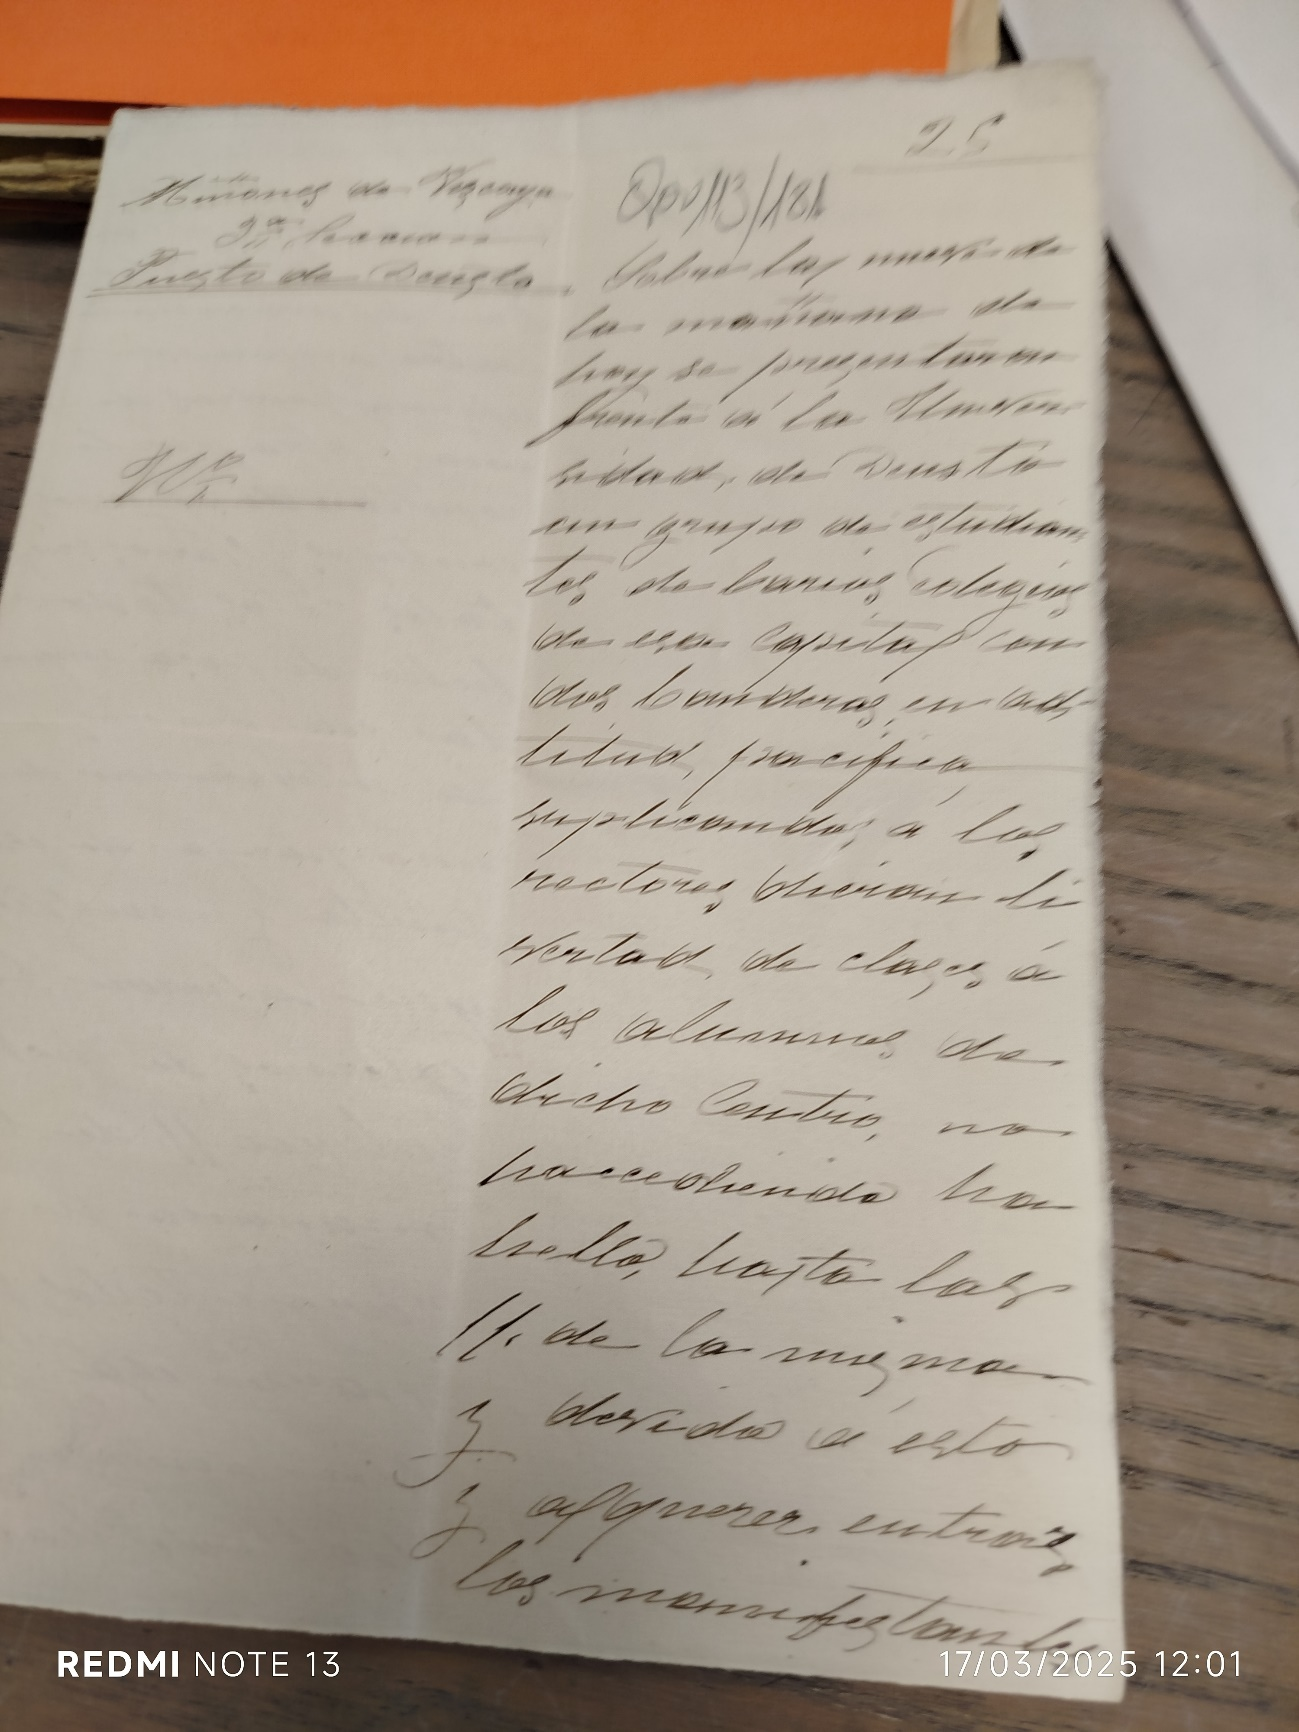 25
Miñones de Vizcaya
3ª Seccion
Puesto de Deusto
Sobre las nueve de
la mañana de
hoy se presentaron
frente á la Univer
sidad, de Deusto
un grupo de estudian
tes de barios colegios
de esa capital con
dos banderas, en acti
titud, pacifica
suplicando, á los
rectores dieran li
vertad, de clases á
los alumnos de
dicho Centro, no
haccediendo ha
hello, hasta las
11. de la misma
y devido á esto
y al querer entrar
los manifestantes
REDMI NOTE 13
17/03/2025 12:01